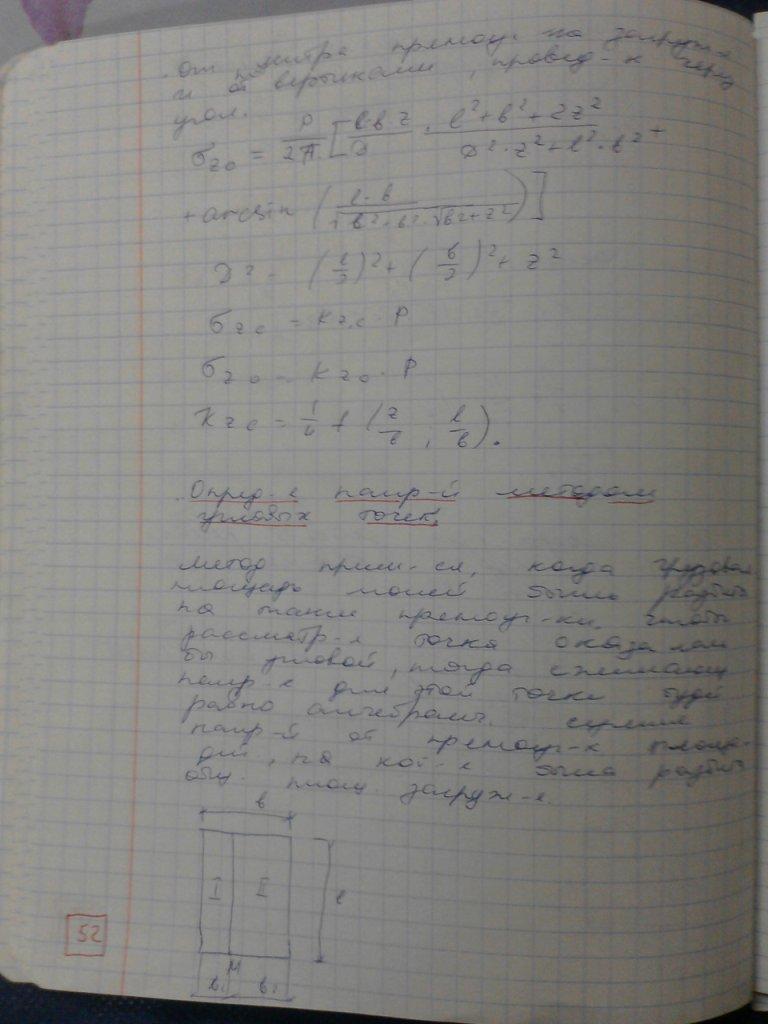 от центра прямоуг. по загруж-я
и от вертикали, провед-х через
угол.
σzo = P/2π [ l·b·z/D · l²+b²+2z²/D²·z²+l²·b² +
+ arcsin ( l·b/√b²+b²·√b²+z² )]
D² = (l/2)² + (b/2)² + z²
σzc = Kzc · P
σzo = Kzo · P
Kzc = f (z/b, l/b).
Опред-е напр-й методом
угловых точек.
Метод прим-ся, когда грузовая
площадь может быть разбита
на такие прямоуг-ки, чтобы
рассматр-я точка оказалась
бы угловой, тогда сжимающ
напр-е для этой точки будет
равно алгебраич. сумме
напр-й от прямоуг-х площа-
дей, на кот-е была разбита
общ. площ. загруж-я.
b
I II l
M
b₁ b₂
52